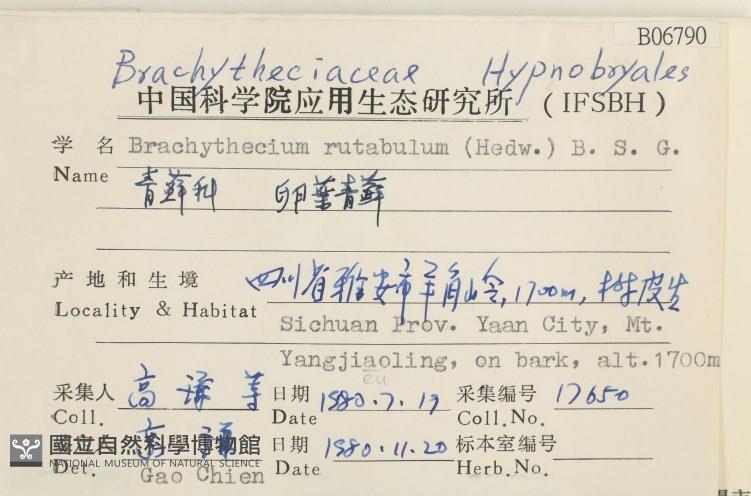 B06790
Brachytheciaceae Hypnobryales
中国科学院应用生态研究所 (IFSBH)
学 名 Brachythecium rutabulum (Hedw.) B. S. G.
Name 青藓科 卵葉青藓
产地和生境 四川省雅安市羊角岭, 1700m, 树皮生
Locality & Habitat
Sichuan Prov. Yaan City, Mt.
Yangjiaoling, on bark, alt.1700m
eu
采集人 高 谦 等 日期 1980.7.19 采集编号 17650
Coll. Date Coll.No.
國立自然科學博物館
NATIONAL MUSEUM OF NATURAL SCIENCE
高 谦 日期 1980.11.20 标本室编号
Det. Gao Chien Date Herb.No.